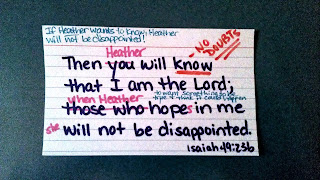 If Heather wants to know, Heather
will not be disappointed!
Heather
- NO DOUBTS
Then you will know
that I am the Lord;
when Heather to want something to be
true & think it could happen
those who hopes in me
she will not be disappointed.
Isaiah 49:23b